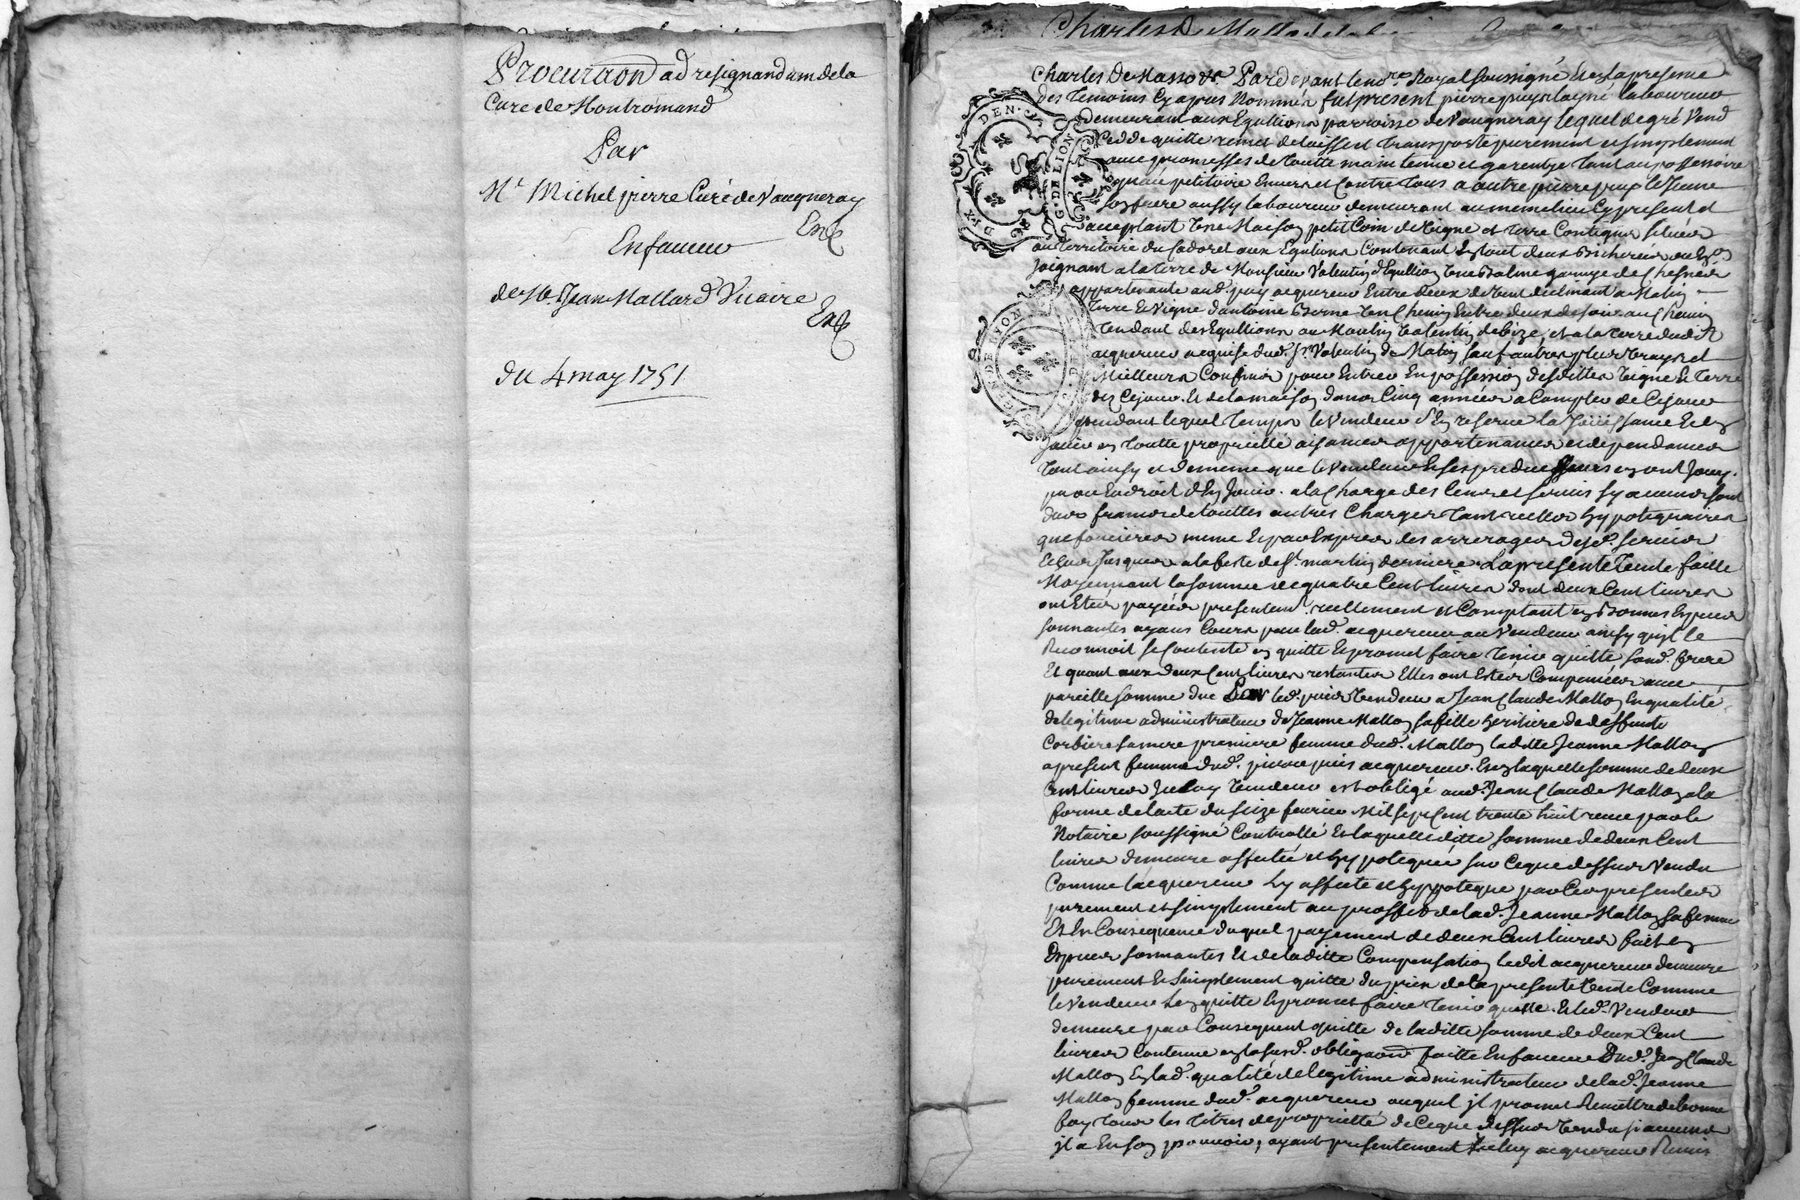 Procuration ad resignandum dela
Cure de Montromand
Par
Mr Michel pierre Curé de Vaugneray
Exp
En faveur
de Mr Jean Mallard Vicaire
Exp
du 4 may 1751
Charles D Mallo
Charles de Masso &c Pardevant le nore Royal soussigné et en la presence
des Temoins Cyapres Nommés fut present pierre puy layné laboureur
demeurant aux Eguillions parroisse de Vaugneray lequel de gré Vend
Cedde quitte remet delaisse et transporte purement et simplement
avec promesses de toutte maintenue et garentye tant au possessoire
qu'au petitoire Envers et Contre tous a autre pierre puy le Jeune
son frere aussy laboureur demeurant au meme lieu Cy present et
acceptant Une Maison petit Coin de Vigne et terre Contigus situés
au Territoire du Cadoret aux Eguilions Contenant En tout deux Bicherées ou Enon
Joignant a la terre de Monsieur Valentin d'Eguillion Une Balme garnye de Chesnes
appartenante aud. puy acquereur Entre deux de Vent declinant a Matin
terre et Vigne d'antoine Un Chemin Entre deux de soir au Chemin
tendant des Eguillions au Moulin Valentin de bize, et a la terre dudit
acquereur acquise dud. Sr. Valentin de Matin sauf autres plus Vrays et
Meilleurs Confins pour Entrer En possession desdittes Vigne Et Terre
dez Cejour. Et de la maison dans Cinq années a Compter de Cejour
pendant lequel Temps le Vendeur s'En reserve la Joüissance Et En
Jouir En toutte proprietté aisances appartenances et dependances
tout ainsy et de meme que le Vendeur Et ses predecesseurs En ont Jouy
pu ou Eu droit d'En Jouir. a la Charge des Cens et servis sy aucuns sont
dus francs de touttes autres Charges tant reelles hypotequaires
que foncieres meme Et par Exprés des arrerages desd. servis
Echus Jusques a la feste de St. martin derniere. La presente Vente faitte
Moyennant la somme de quatre Cent livres dont deux Cent livres
ont Etés payées presentemt. reellement et Comptant En Bonnes Especes
sonnantes ayans Cours par led. acquereur au Vendeur ainsy qu'il le
Reconnoit se Contente En quitte Et promet faire Tenir quitte sond. frere
Et quant aux deux Cent livres restantes Elles ont Estés Compensées avec
pareille somme due Par led. puy Vendeur a Jean Claude Mallon En qualité
de legitime administrateur de Jeanne Mallon sa fille heritiere de deffunte
Corbiere sa mere premiere femme dud. Mallon laditte Jeanne Mallon
a present femme dud. pierre puy acquereur. En laquelle somme de deux
Cent livres Jceluy Vendeur est obligé aud. Jean Claude Mallon a la
forme de lacte du seize fevrier Mil sept Cent trente huit receu par le
Notaire soussigné Controllé Et laquelle ditte somme de deux Cent
livres demeure affectée et hypotequée sur Ceque dessus Vendu
Comme lacquereur Ly affecte et hyppoteque par Ces presentes
purement et simplement au proffit de lad. Jeanne Mallon sa femme
Et En Consequence duquel payement de deux Cent livres fait En
Especes sonnantes Et de laditte Compensation ledit acquereur demeure
purement Et Simplement quitte du prix de la presente Vente Comme
le Vendeur L'En quitte Et promet faire Tenir quitte. Et led. Vendeur
demeure par Consequent quitte de laditte somme de deux Cent
livres Contenue En la susd. obligaon. faitte En faveur Dud. Jean Claude
Mallon En lad. qualité de legitime administrateur de lad. Jeanne
Mallon femme dud. acquereur auquel Jl promet Remettre de bonne
foy Tous les Titres de proprietté de Ceque dessus Vendu si aucuns
Jl a En son pouvoir, ayant presentement Jceluy acquereur Remis